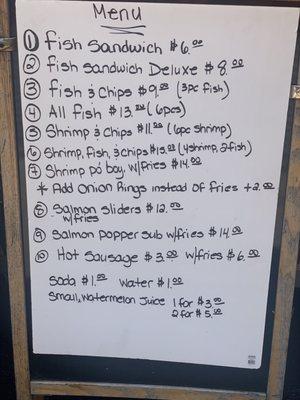 Menu
① Fish Sandwich $6.00
② Fish Sandwich Deluxe $8.00
③ Fish & Chips $9.00 (3pc fish)
④ All Fish $13.00 (6pcs)
⑤ Shrimp & Chips $11.00 (6pc shrimp)
⑥ Shrimp, Fish, & Chips $15.00 (4shrimp, 2fish)
⑦ Shrimp po' boy, w/fries $14.00
* Add Onion Rings instead of fries +2.00
⑧ Salmon Sliders $12.00
w/fries
⑨ Salmon Popper Sub w/fries $14.00
⑩ Hot Sausage $3.00 w/fries $6.00
Soda $1.00 Water $1.00
Small, Watermelon Juice 1 for $3.00
2 for $5.00